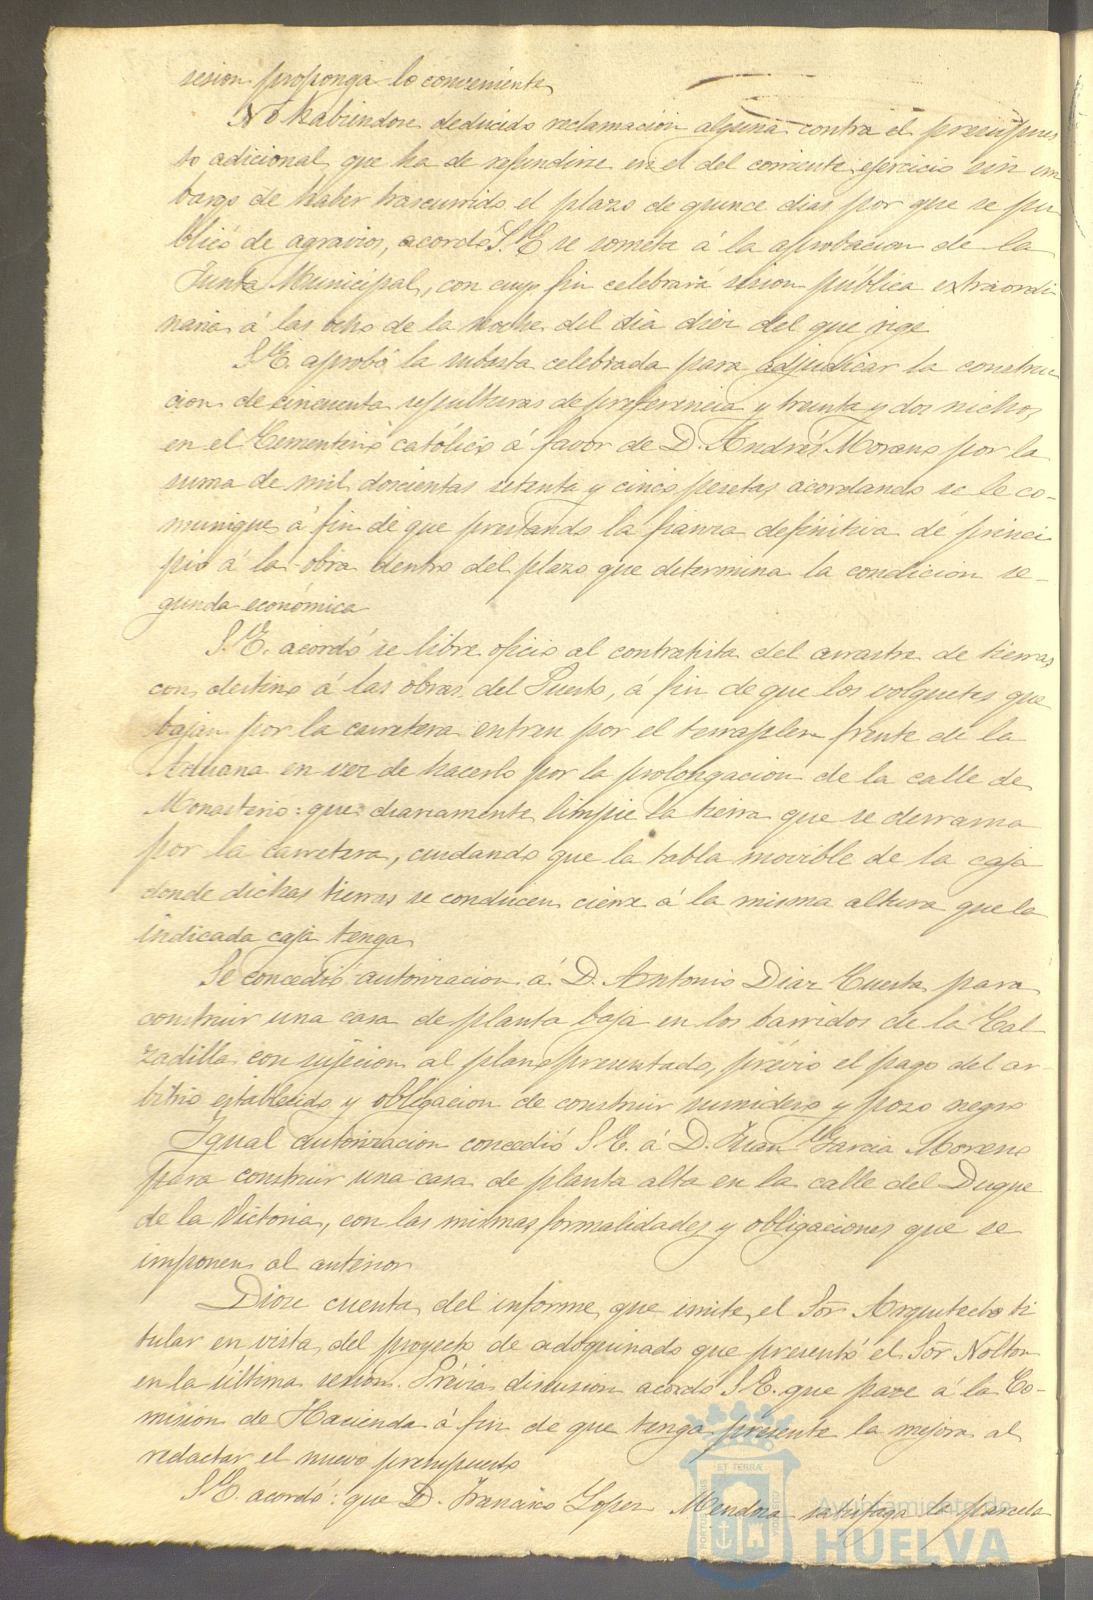 sesion proponga lo conveniente
No habiendose deducido reclamación alguna contra el presupues
to adicional que ha de refundirse en el del corriente ejercicio sin em
bargo de haber trascurrido el plazo de quince dias por que se pu
blicó de agravios, acordó S.E. se someta á la aprobacion de la
Junta Municipal, con cuyo fin celebrará sesion pública extraordi
naria á las ocho de la noche del dia diez del que rige
S.E. aprobó la subasta celebrada para adjudicar la construc
cion de cincuenta sepulturas de preferencia y treinta y dos nichos
en el Cementerio católico á favor de D. Andrés Moreno por la
suma de mil doscientas setenta y cinco pesetas acordando se le co-
munique á fin de que prestando la fianza definitiva dé princi
pio á la obra dentro del plazo que determina la condicion se-
gunda económica
S.E. acordó se libre oficio al contratista del arrastre de tierras
con destino á las obras del Puerto, á fin de que los volquetes que
bajan por la carretera entren por el terraplen frente de la
Aduana en vez de hacerlo por la prolongacion de la calle de
Monasterio: que diariamente limpie la tierra que se derrama
por la carretera, cuidando que la tabla movible de la caja
donde dichas tierras se conducen cierre á la misma altura que la
indicada caja tenga
Se concedió autorizacion á D. Antonio Diaz Cuesta para
construir una casa de planta baja en los barridos de la Cal
zadilla con sujecion al plano presentado, prévio el pago del ar-
bitrio establecido y obligacion de construir sumidero y pozo negro
Igual autorizacion concedió S.E. á D. Juan Garcia Moreno
para construir una casa de planta alta en la calle del Duque
de la Victoria, con las mismas formalidades y obligaciones que se
imponen al anterior
Diose cuenta del informe que emite el Sor. Arquitecto ti
tular en vista del proyecto de adoquinado que presentó el Sor.
en la última sesion. Prévia discusion acordó S.E. que pase á la Co-
mision de Hacienda á fin de que tenga presente la mejora al
redactar el nuevo presupuesto
S.E. acordó: que D. Francisco Lopez Mendoza satisfaga la parcela
Ayuntamiento de
HUELVA